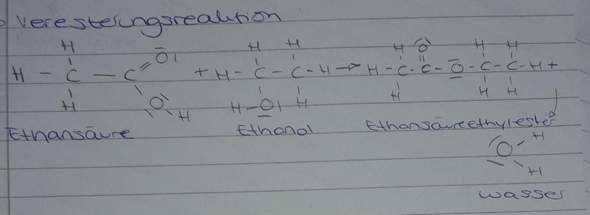 Veresterungsreaktion
H H H H O H H
H - C - C = O + H - C - C - H → H - C - C - O - C - C - H +
H O H H - O H H H H
Ethansäure Ethanol Ethansäureethylester
O H
H
Wasser